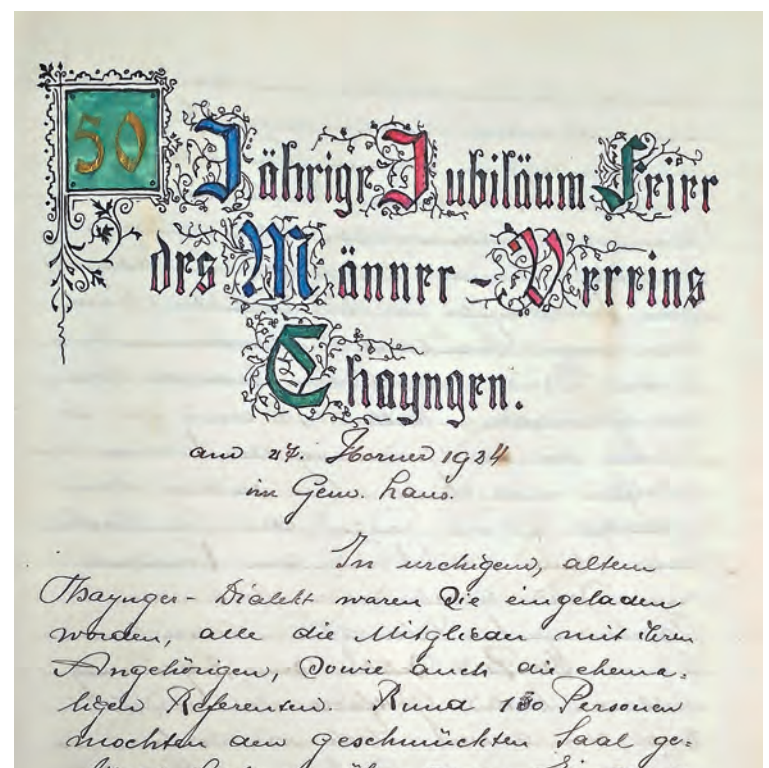 50 Jährige Jubiläum Feier
des Männer-Vereins
Thayngen.
am 27. Horner 1924
im Gem. haus.
In urchigem, altem
Thaynger-Dialekt waren Sie eingeladen
worden, alle die Mitglieder mit ihren
Angehörigen, sowie auch die ehema=
ligen Referenten. Rund 130 Personen
mochten den geschmückten Saal ge=